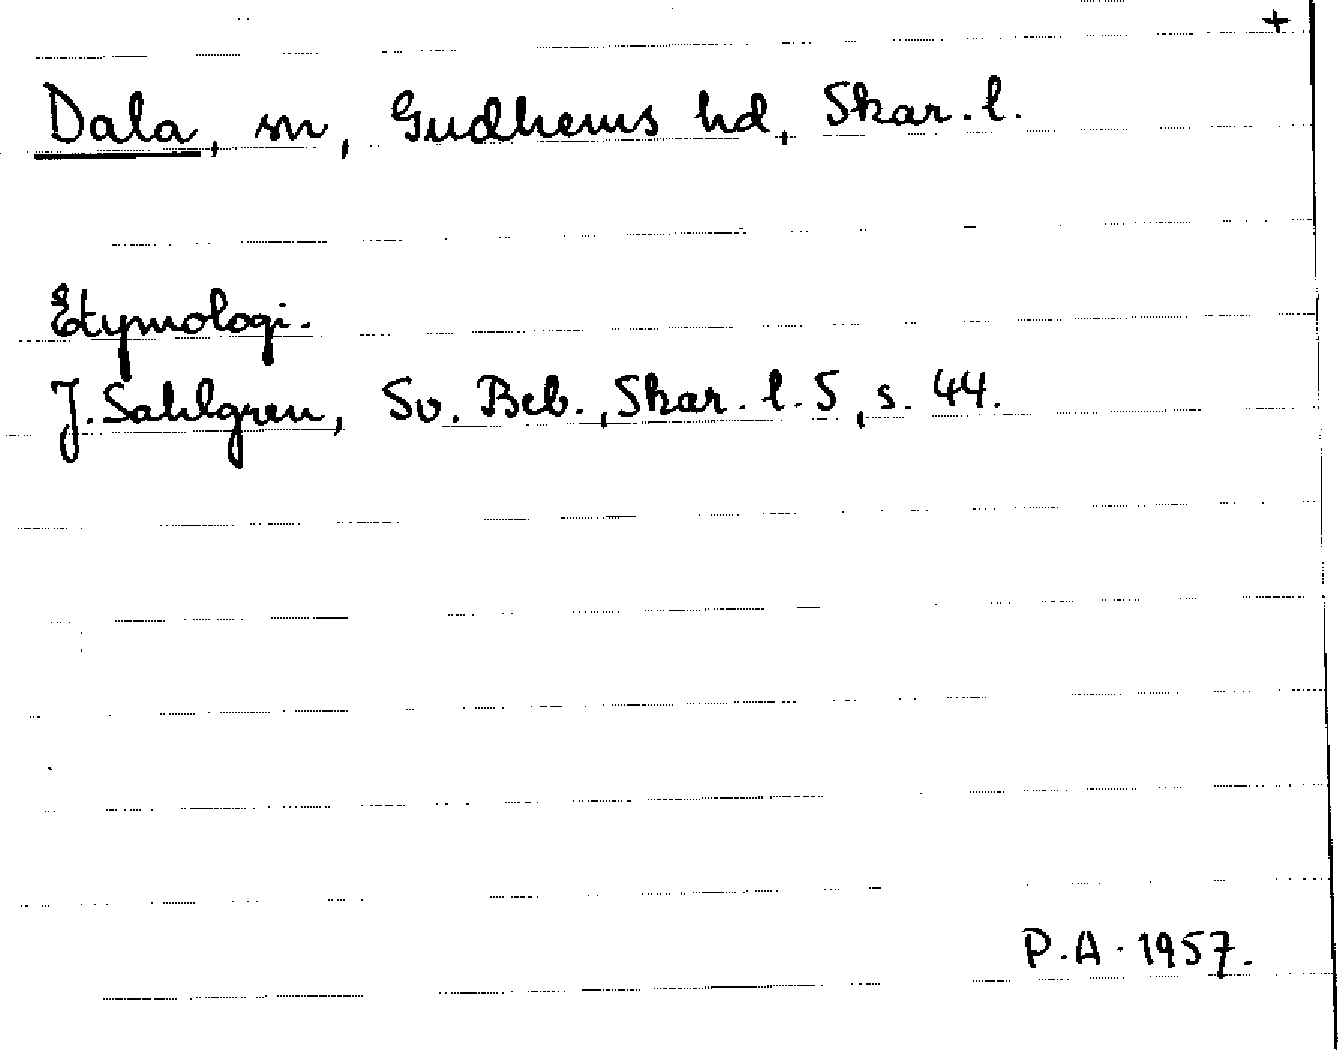 +
Dala, sn, Gudhems hd, Skar. l.
Etymologi.
J. Sahlgren, Sv. Beb., Skar. l. 5, s. 44.
P. A. 1957.